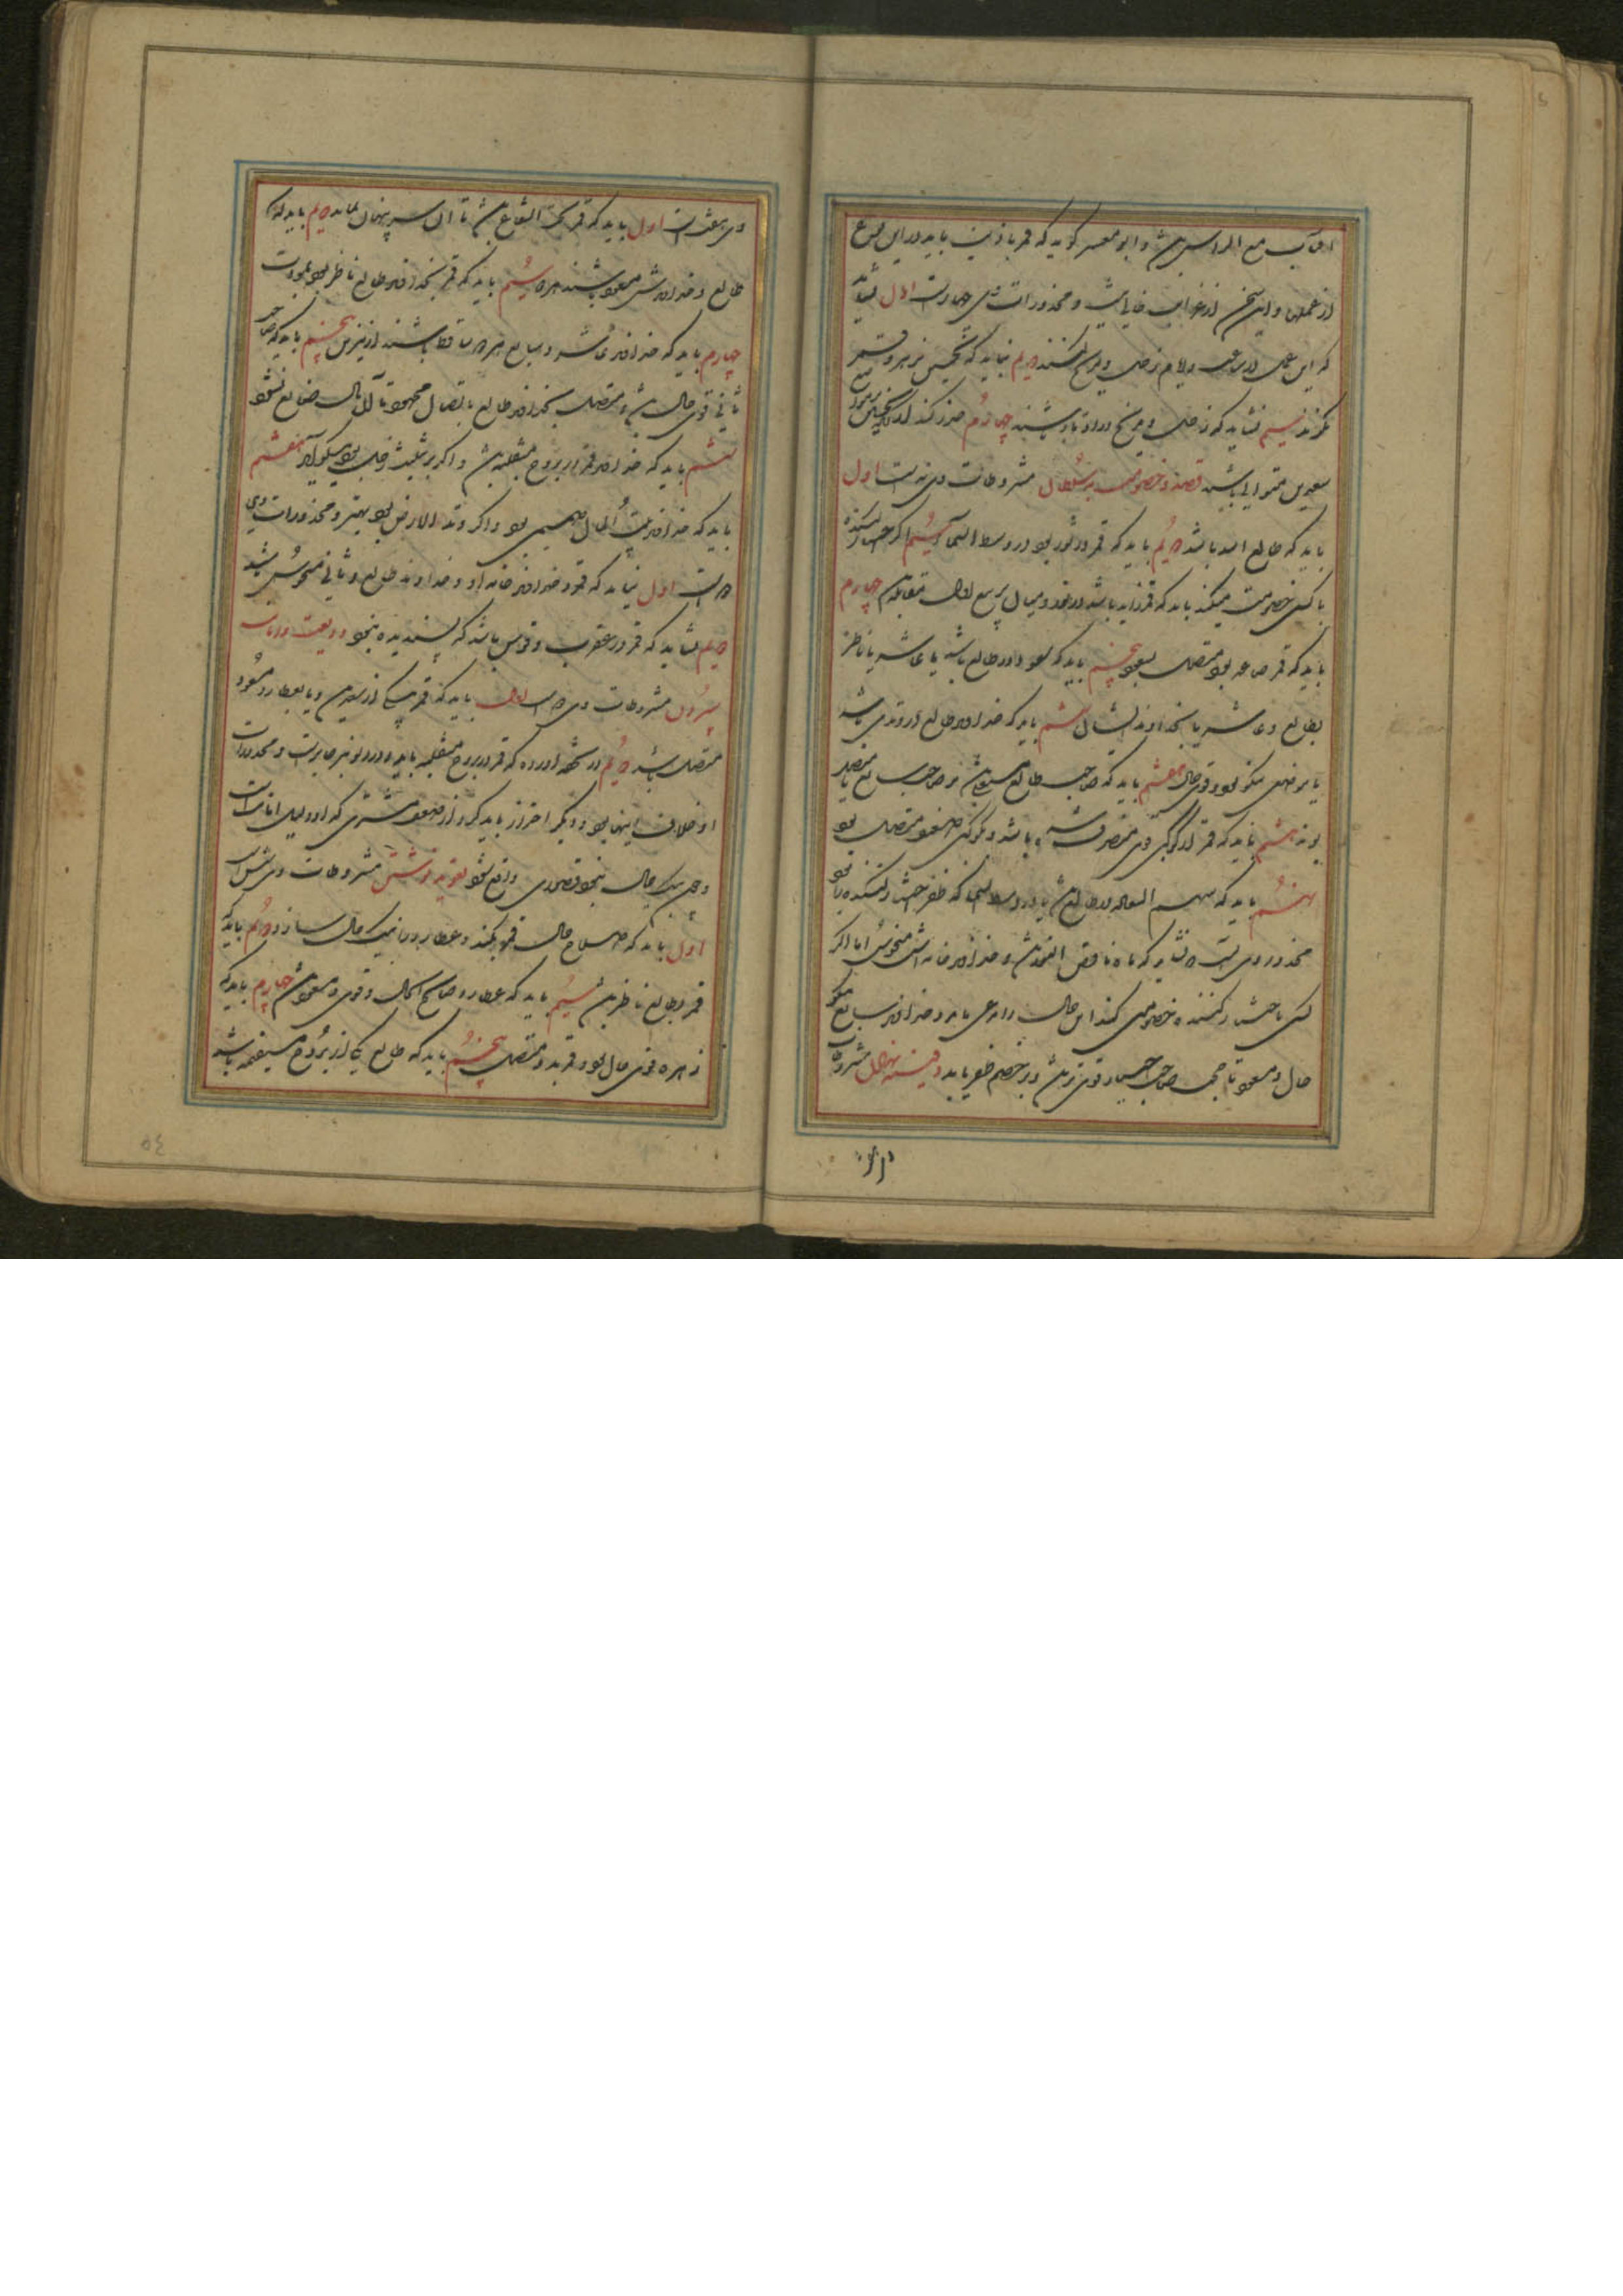 مع الراس باشد و ابو معشر کوید که قمر باذنب باید در این نوع
از عملها و این سخن از غرابت خالی نیست و محذورات وی چهارست اول نشاید
که این عمل در ساعت و ایام زحل و مریخ کنند دویم نباید که نحسین بزهره و قمر
نکرند سیم نشاید که زحل و مریخ در اوتاد باشند چهارم حذر کنند از آنکه نحسین
سعدین مستولی باشند قصد و خصومت بر سلطان مشروطات وی نه است اول
باید که طالع اسد باشد دویم باید که قمر در ثور بود در وسط السما سیم اکر
با کسی خصومت میکند باید که قمر زاید باشد در نور و میان تربیع اول و مقابله چهارم
باید که قمر صاعد بود متصل بسعود پنجم باید که سعود در طالع باشد یا عاشر یا ناظر
بطالع و عاشر یا بخداوند ایشان ششم باید که خداوند طالع در وتدی باشد
یا موضعی نیکو بود و قوی حال هفتم باید که صاحب طالع و صاحب سابع متصل
بوند هشتم باید که قمر از کوکبی قوی منصرف باشد و بکوکبی ضعیف متصل بود
نهم باید که سهم السعاده در طالع باشد یا در وسط السما که ظفر را بود
محذور وی آنست که نشاید که ماه ناقص النور باشد و خداوند خانه اش منحوس اما اکر
کسی با کننده خصومتی کند این حال را مرعی باید و خداوند سابع نیکو
حال و مسعود تا صاحب قوی تر باشد و بر خصم ظفر یابد دفینه نهادن مشروطات
وی هفت است اول باید که قمر تحت الشعاع باشد تا آن سر پنهان بماند دویم باید که
طالع و خداوندش مسعود باشند بزهره سیم باید که قمر بخداوند طالع ناظر بود بمودت
چهارم باید که خداوند عاشر و سابع هر دو ساقط باشند از نیرین پنجم باید که صاحب
ثانی قوی حال باشد و متصل بخداوند طالع باتصال محمود تا آن مال ضایع نشود
ششم باید که خداوند قمر در بروج منقلبه باشد و اکر بر تثلیث زحل بود نیکو آید هفتم
باید که خداوند بیت المال مستقیم بود و اکر وتد الارض بود بهتر و محذورات وی
دو است اول نباید که قمر و خداوند خانه او و خداوند طالع و ثانی منحوس باشند
دویم نشاید که قمر در عقرب و قوس باشد که پسندیده نبود ودیعت و امانت
سپردن مشروطات وی دو است اول باید که قمر پاک از نحسین و یا بعطارد مسعود
متصل باشد دویم در تحفه آورده که قمر در بروج منقلبه باید و در دلو نیز جایز است و محذورات
او خلاف اینها بود و دیکر احتراز باید کرد از ضعف مشتری که او دلیل امانتست
و چون نیک حال نبود قصوری واقع شود تعویذ نوشتن مشروطات وی شش است
اول باید که اصلاح حال قمر کند و عطارد را نیک حال سازد دویم باید که
قمر بطالع ناظر باشد سیم باید که عطارد صالح الحال و قوی و مسعود باشد چهارم باید که
زهره قوی حال بود و قمر بدو متصل پنجم باید که طالع یکی از بروج مستقیمه باشد